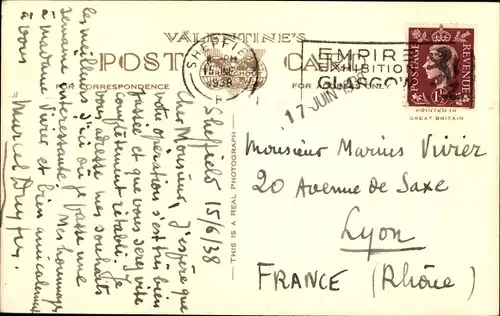 VALENTINE'S
POST CARD
CORRESPONDENCE
FOR
SHEFFIELD
15 JNE
1938
EMPIRE
EXHIBITION
GLASGOW
17 JUIN
POSTAGE
REVENUE
1½
PRINTED IN
GREAT BRITAIN
THIS IS A REAL PHOTOGRAPH
Sheffield 15/6/38
Cher Monsieur, j'espère que
votre opération s'est très bien
passée et que vous serez vite
complètement rétabli. Je
vous adresse mes souhaits
les meilleurs d'ici où je passe une
semaine intéressante. Mes hommages
à madame Vivier et bien amicalement
à vous
Marcel
Monsieur Marius Vivier
20 Avenue de Saxe
Lyon
FRANCE (Rhône)